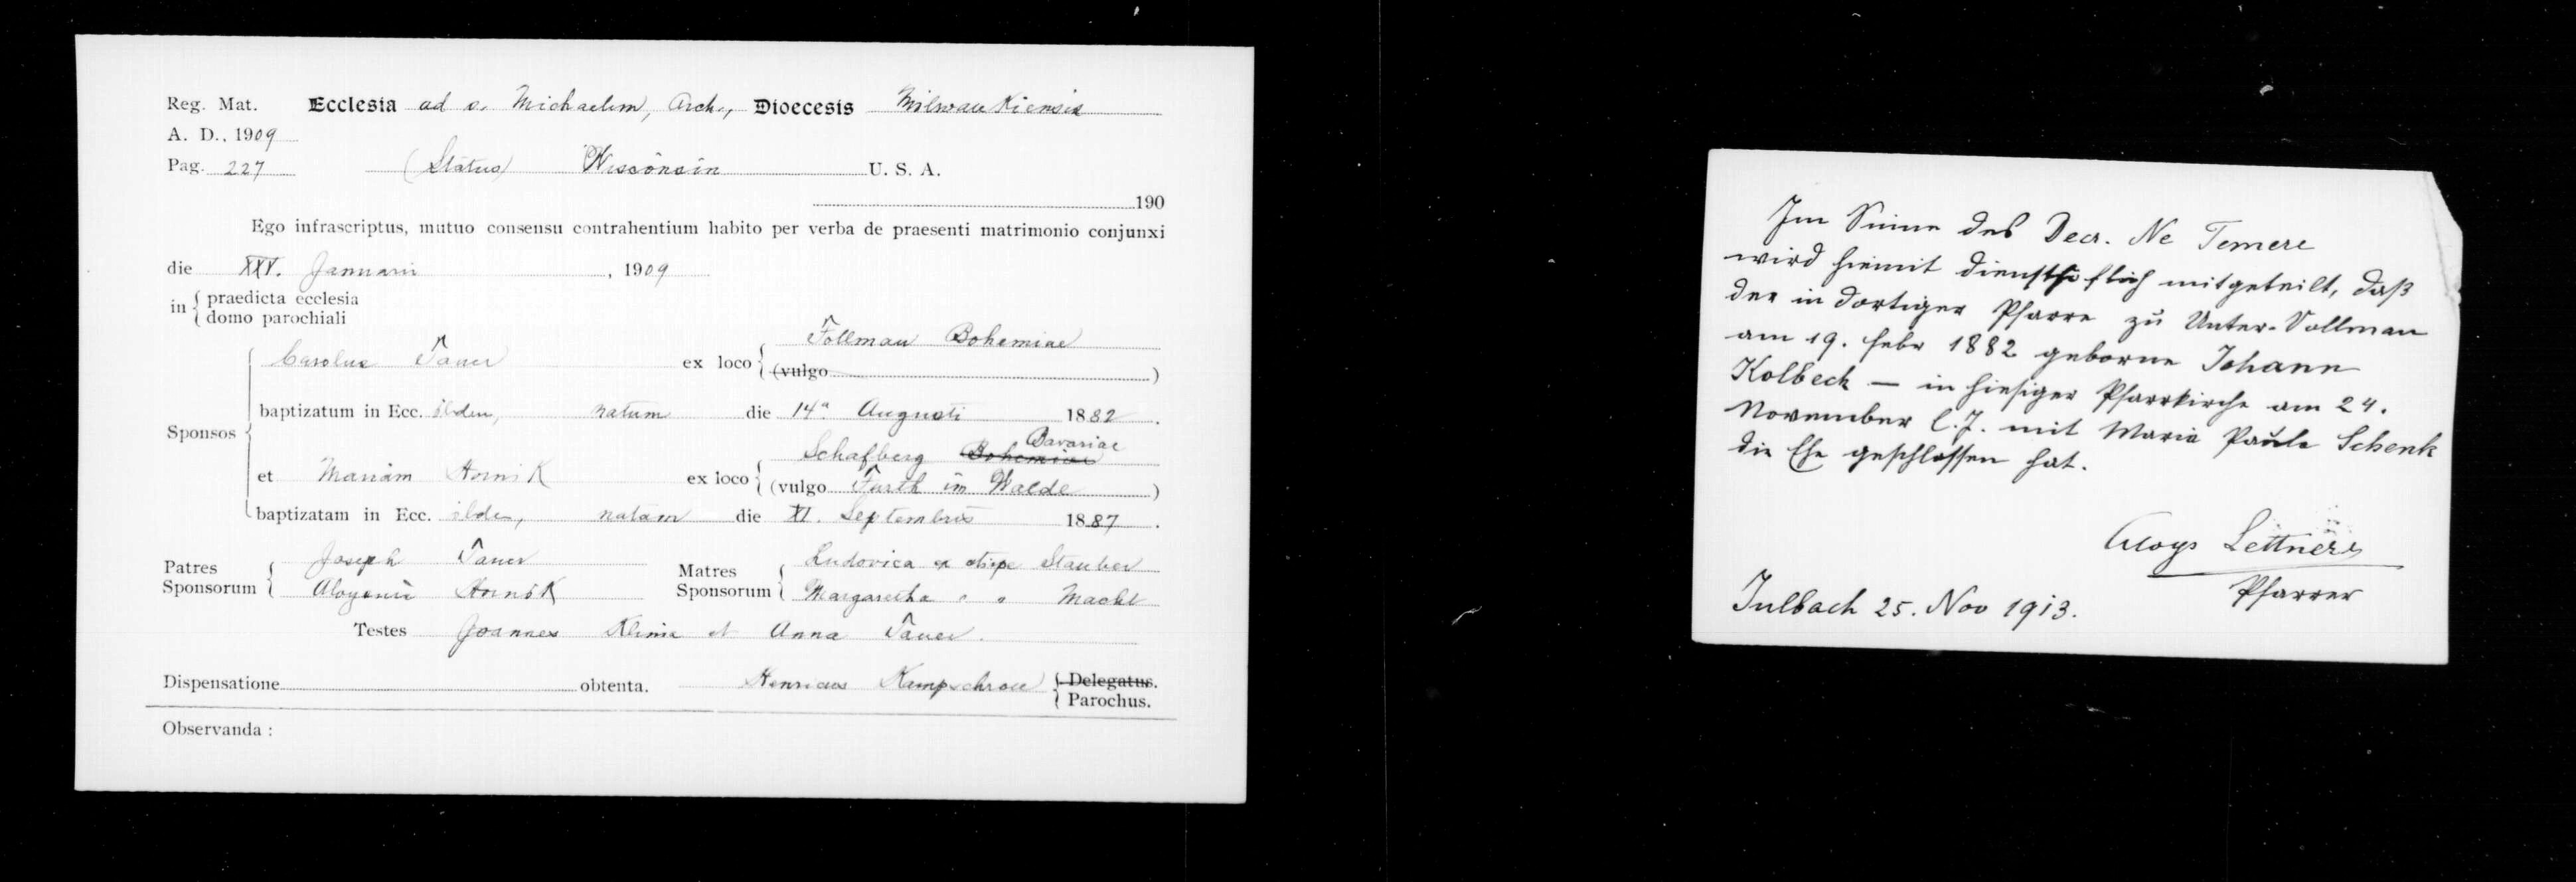 Reg. Mat. Ecclesia ad s. Michaelem, Arch., Dioecesis Milwaukiensis
A. D., 1909
Pag. 227 (Status) Wisconsin U. S. A.
190
Ego infrascriptus, mutuo consensu contrahentium habito per verba de praesenti matrimonio conjunxi
die XXV. Januarii, 1909
in { praedicta ecclesia
domo parochiali
Sponsos
Carolus Tauer ex loco { Follmau Bohemiae
(vulgo )
baptizatum in Ecc. ibdem, natum die 14a Augusti 1882.
Bavariae
et Mariam Hornik ex loco { Schafberg Bohemiae
(vulgo Furth im Walde )
baptizatam in Ecc. ibdem, natam die XI. Septembris 1887.
Patres Sponsorum { Joseph Tauer
Aloysius Hornik
Matres Sponsorum { Ludovica ex stirpe Stauber
Margaretha " " Machl
Testes Joannes Klima et Anna Tauer.
Dispensatione obtenta. Henricus Kampschroer { Delegatus.
Parochus.
Observanda :
Im Sinne des Decr. Ne Temere
wird hiemit diensthöflich mitgeteilt, daß
der in dortiger Pfarre zu Unter-Vollmau
am 19. Febr 1882 geborne Johann
Kolbeck — in hiesiger Pfarrkirche am 24.
November l. J. mit Maria Paula Schenk
die Ehe geschlossen hat.
Aloys Leitner
Pfarrer
Julbach 25. Nov 1913.